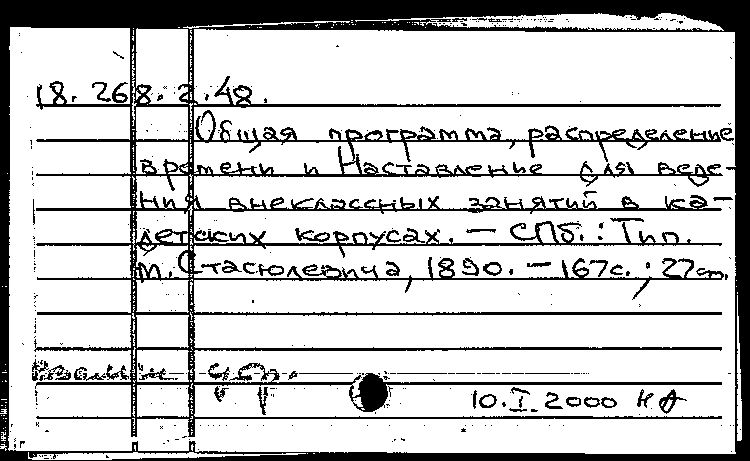 18. 268. 2. 48.
Общая программа, распределение
времени и Наставление для веде-
ния внеклассных занятий в ка-
детских корпусах. — СПб.: Тип.
М. Стасюлевича, 1890. — 167с.; 27см.
10.I.2000